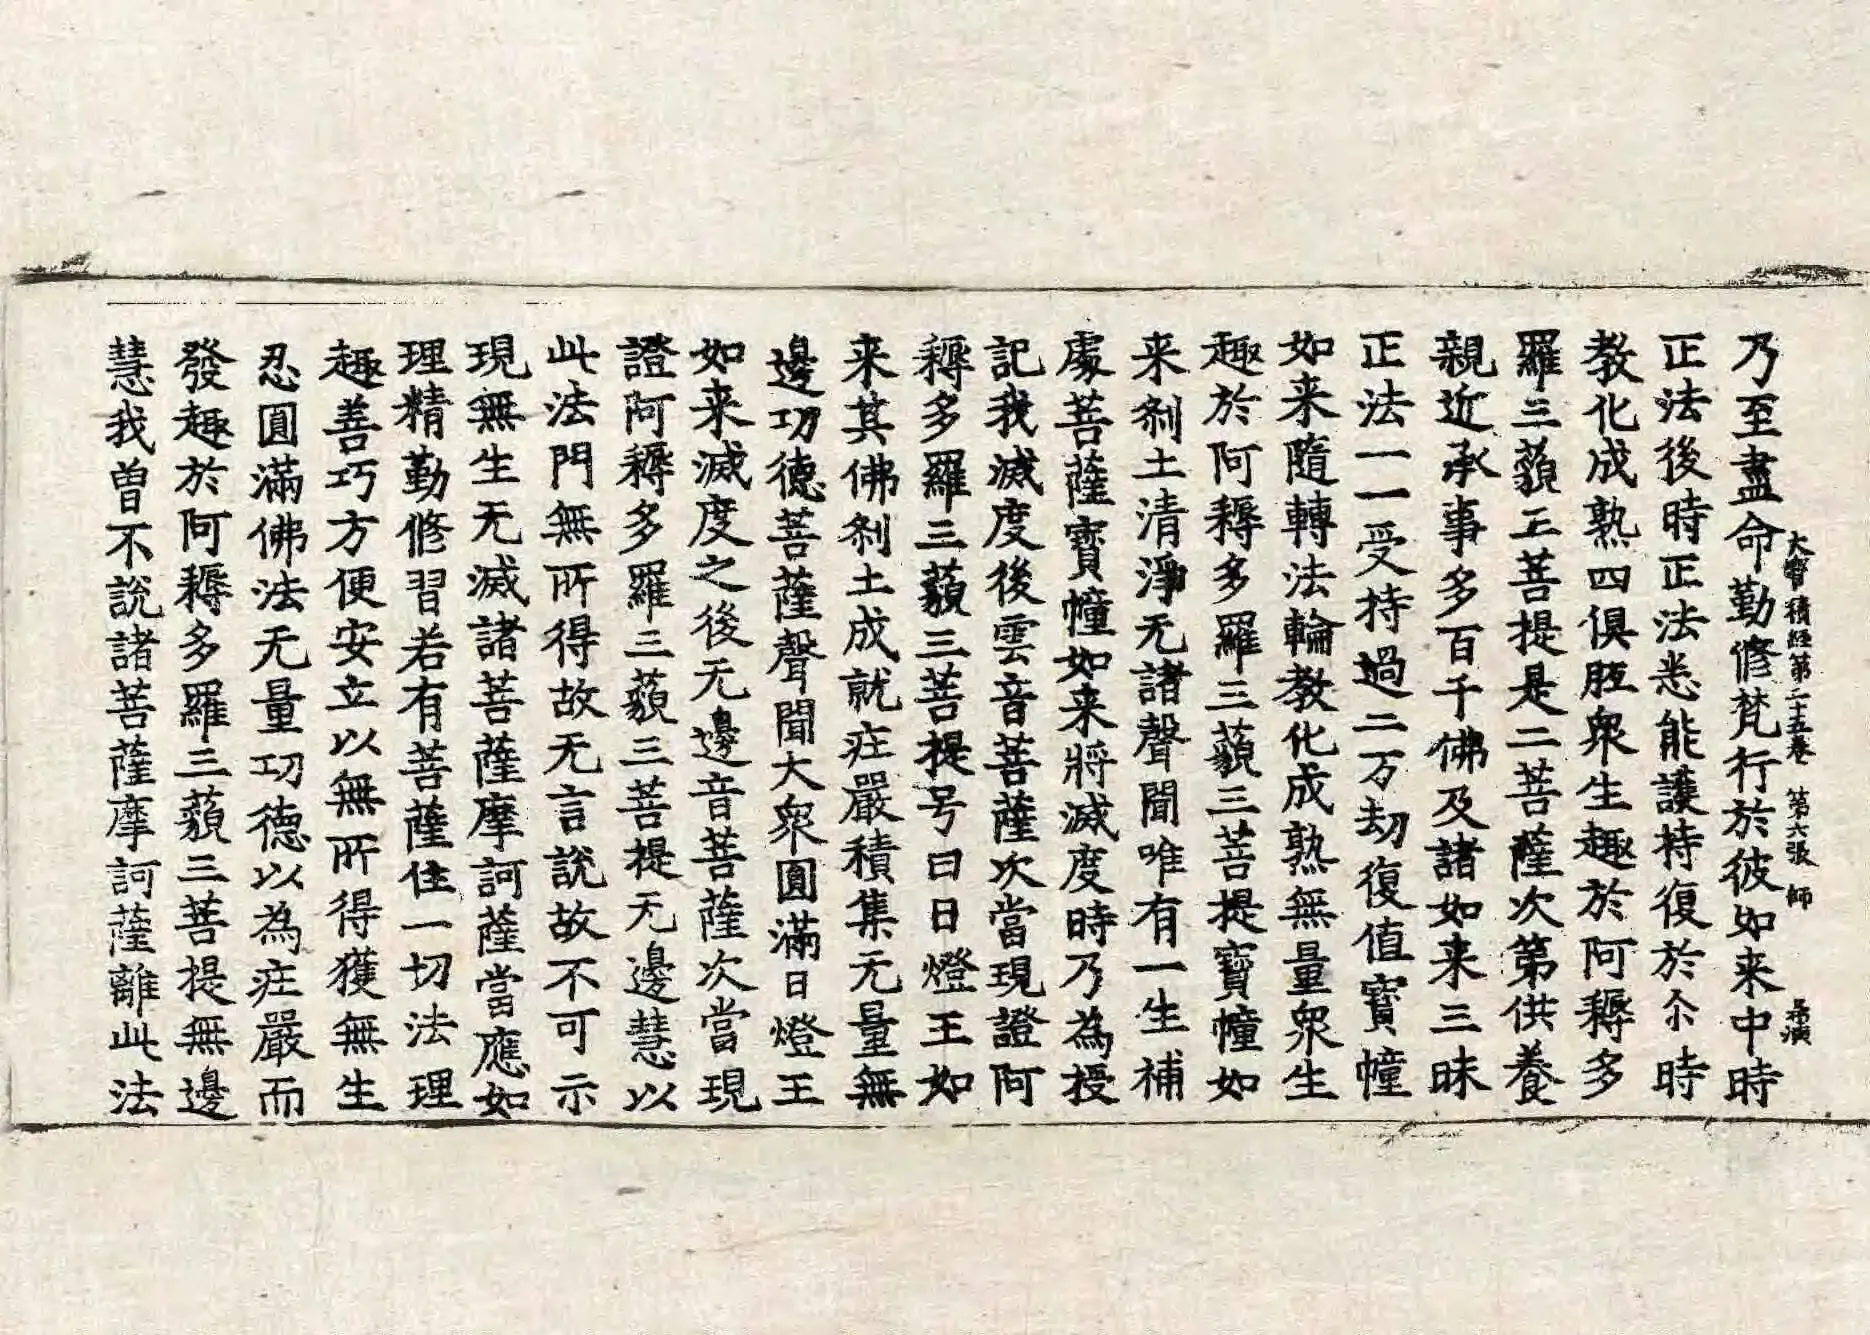 乃至盡命勤修梵行於彼如来中時
大寶積經第二十五卷 第六張 師
正法後時正法悉能護持復於尒時
教化成熟四俱胝衆生趣於阿耨多
羅三藐三菩提是二菩薩次第供養
親近承事多百千佛及諸如来三昧
正法一一受持過二万劫復值寶幢
如来隨轉法輪教化成熟無量衆生
趣於阿耨多羅三藐三菩提寶幢如
来刹土清淨无諸聲聞唯有一生補
處菩薩寶幢如来將滅度時乃為授
記我滅度後雲音菩薩次當現證阿
耨多羅三藐三菩提号曰日燈王如
来其佛刹土成就庄嚴積集无量無
邊功德菩薩聲聞大衆圓滿日燈王
如来滅度之後无邊音菩薩次當現
證阿耨多羅三藐三菩提无邊慧以
此法門無所得故无言說故不可示
現無生无滅諸菩薩摩訶薩當應如
理精勤修習若有菩薩住一切法理
趣善巧方便安立以無所得獲無生
忍圓滿佛法无量功德以為庄嚴而
發趣於阿耨多羅三藐三菩提無邊
慧我曾不說諸菩薩摩訶薩離此法